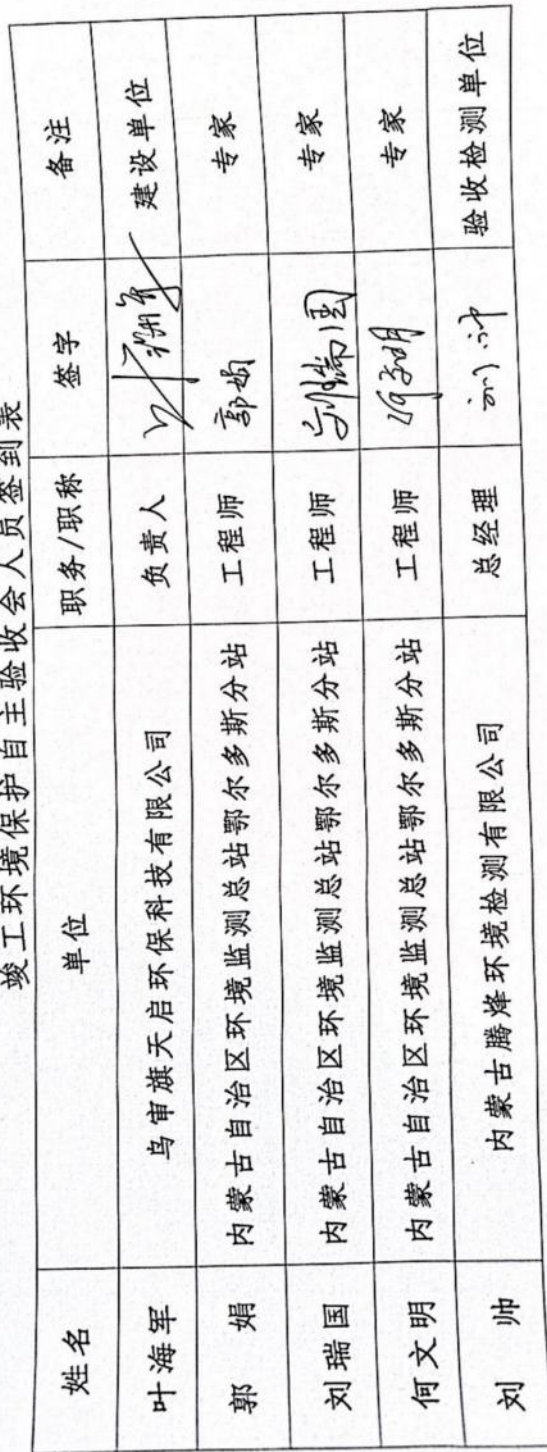 竣工环境保护自主验收会人员签到表
姓名 单位 职务/职称 签字 备注
叶海军 乌审旗天启环保科技有限公司 负责人 叶海军 建设单位
郭娟 内蒙古自治区环境监测总站鄂尔多斯分站 工程师 郭娟 专家
刘瑞国 内蒙古自治区环境监测总站鄂尔多斯分站 工程师 刘瑞国 专家
何文明 内蒙古自治区环境监测总站鄂尔多斯分站 工程师 何文明 专家
刘帅 内蒙古腾烽环境检测有限公司 总经理 刘帅 验收检测单位